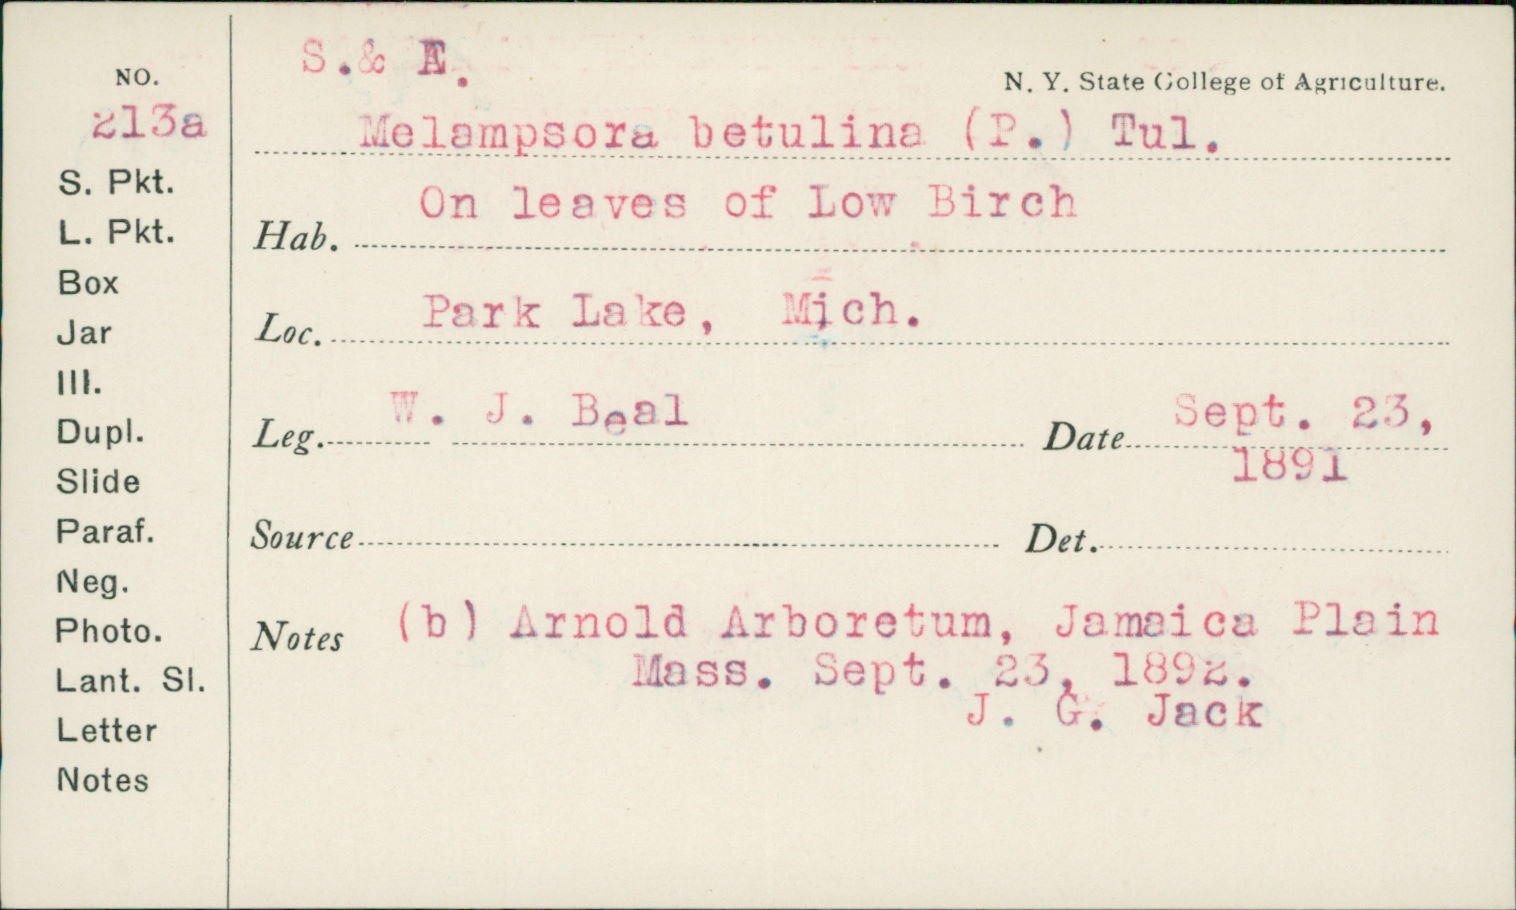 S.& E.
NO.
N. Y. State College of Agriculture.
213a
Melampsora betulina (P.) Tul.
S. Pkt.
On leaves of Low Birch
L. Pkt.
Hab.
Box
Park Lake, Mich.
Jar
Loc.
Ill.
W. J. Beal
Sept. 23,
Dupl.
Leg.
Date
1891
Slide
Paraf.
Source
Det.
Neg.
Photo.
Notes (b) Arnold Arboretum, Jamaica Plain
Lant. Sl.
Mass. Sept. 23, 1892.
J. G. Jack
Letter
Notes